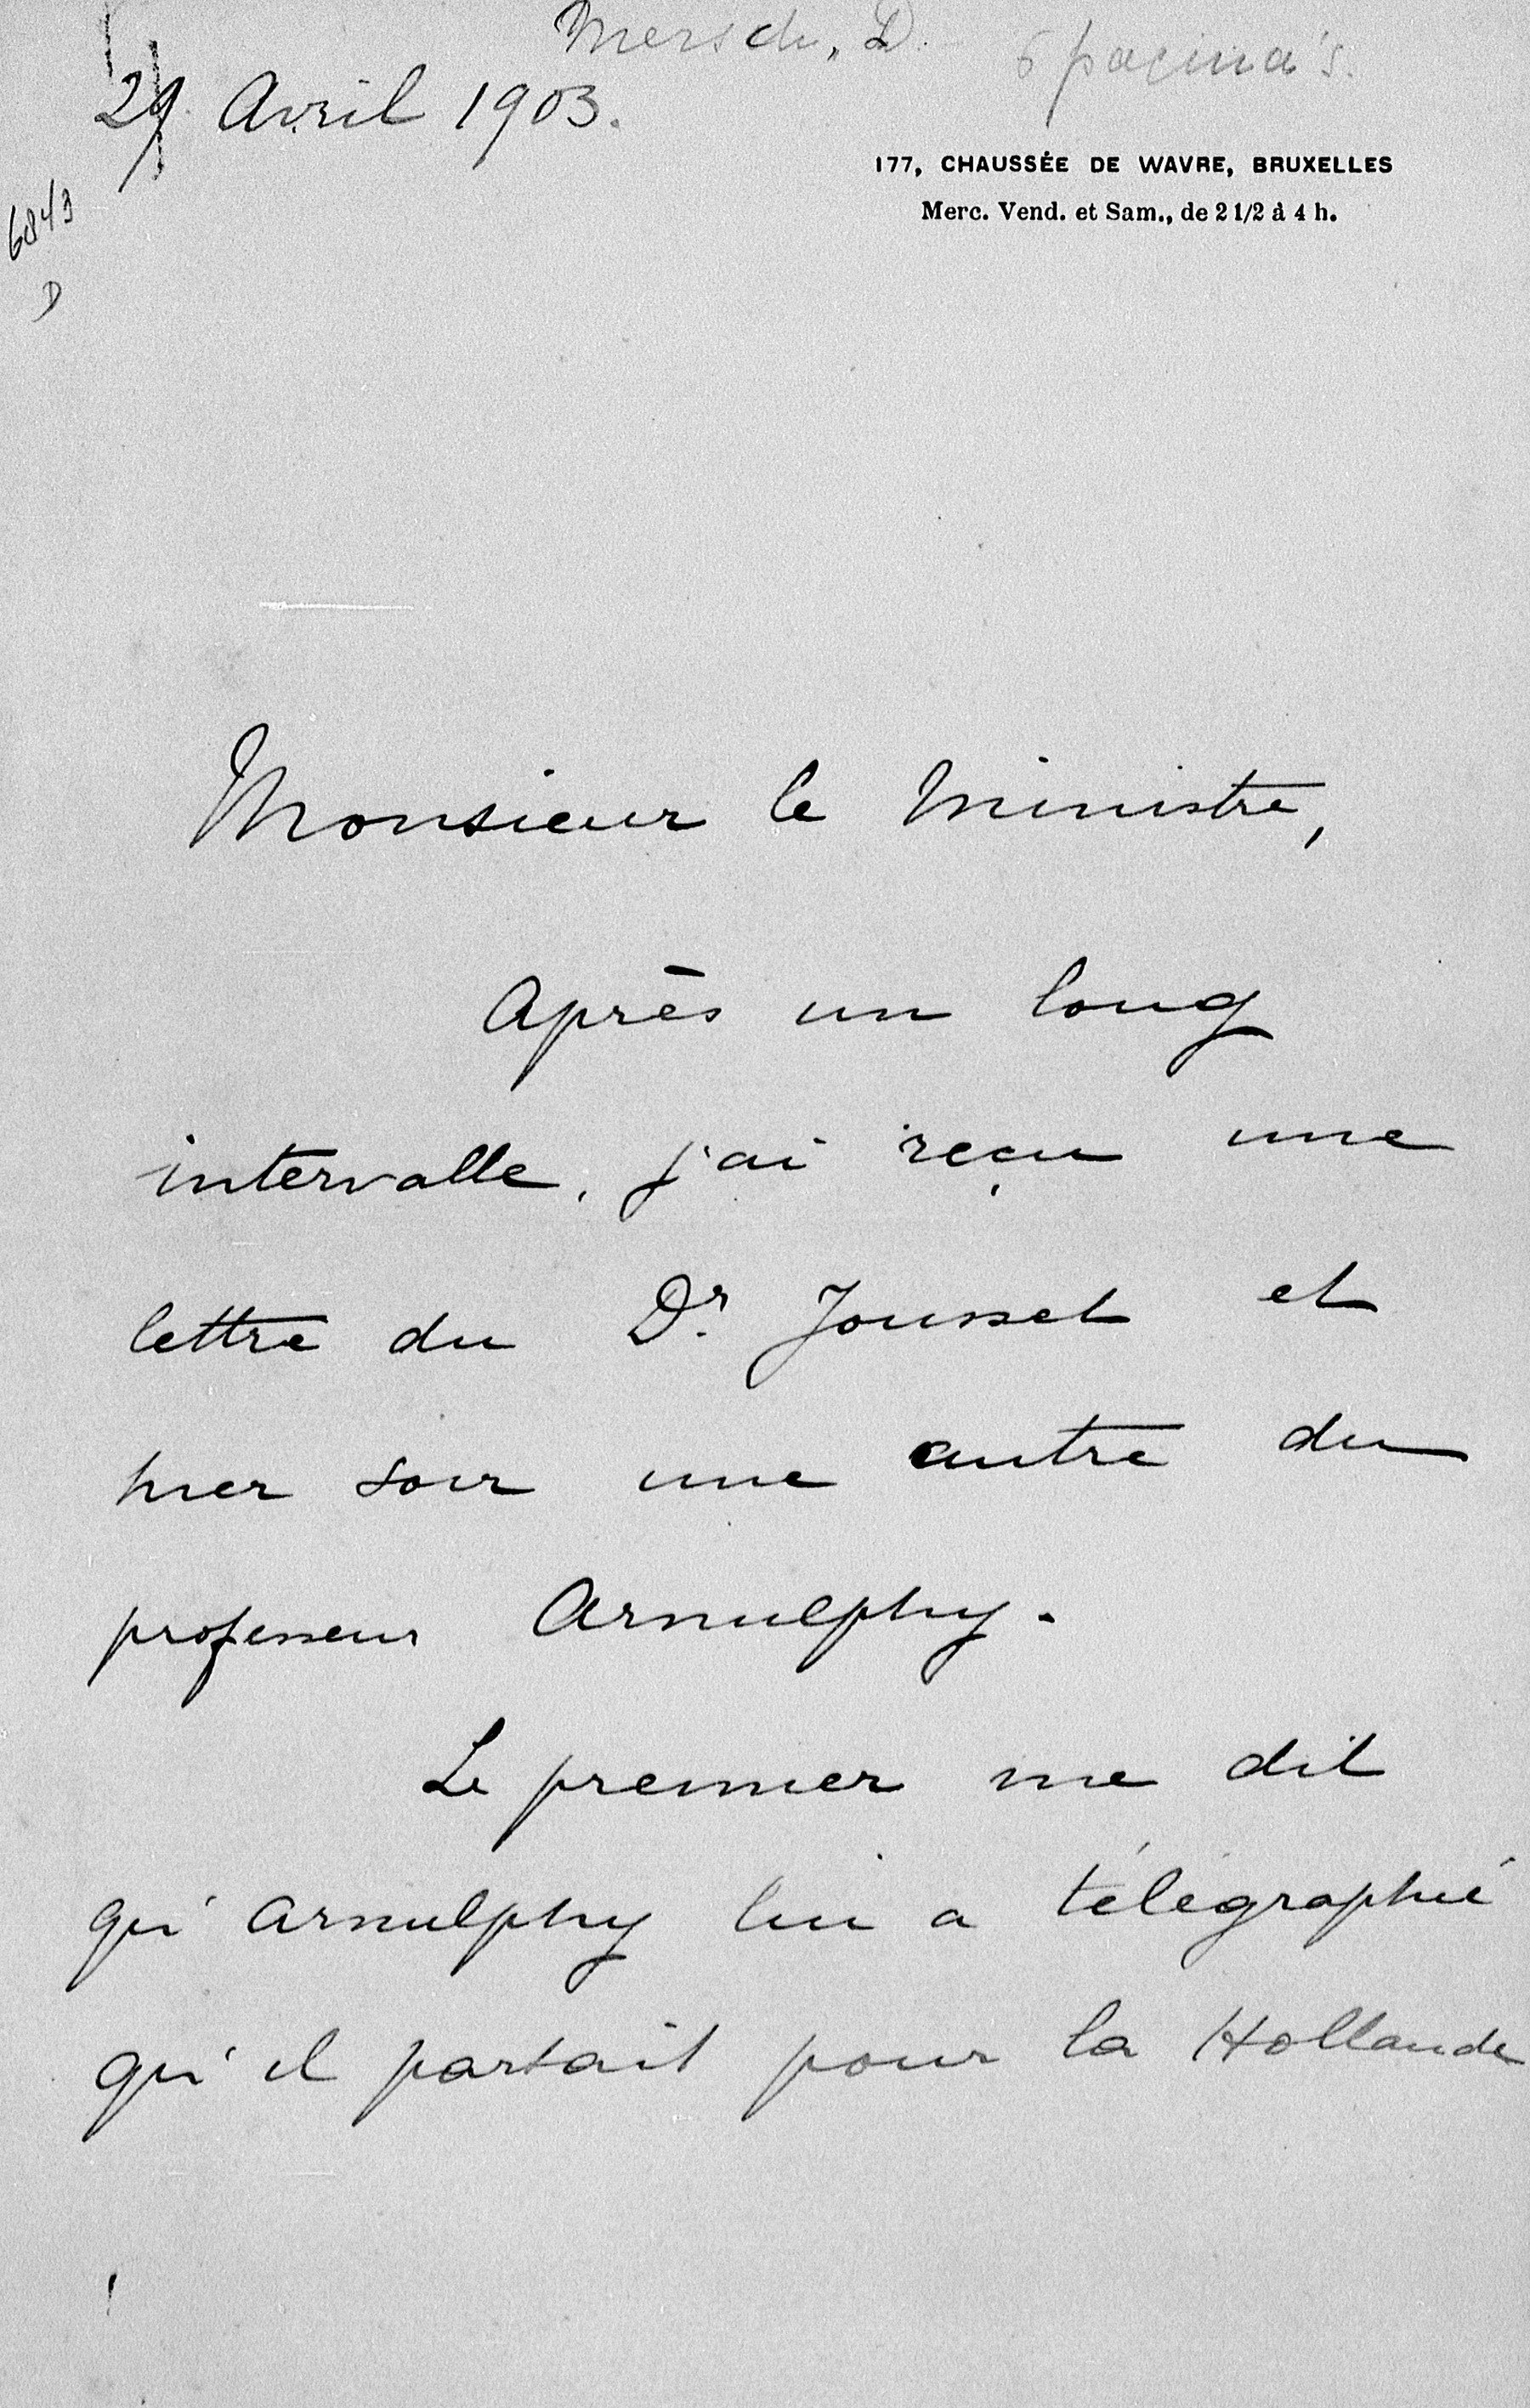 Mersch, D.
6 pagina's.
29 Avril 1903.
177, CHAUSSÉE DE WAVRE, BRUXELLES
Merc. Vend. et Sam., de 2 1/2 à 4 h.
D
Monsieur le Ministre,
Après un long
intervalle, j'ai reçu une
lettre du Dr. Jousset et
hier soir une autre du
professeur Arnulphy.
Le premier me dit
qu'Arnulphy lui a télégraphié
qu'il partait pour la Hollande